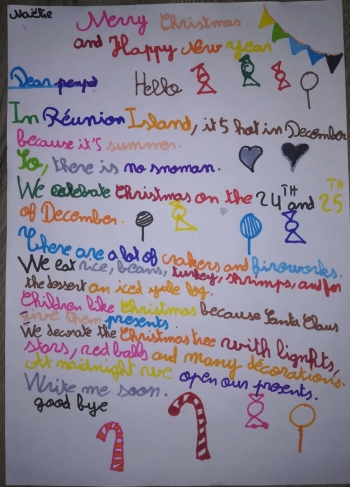 Maëlie
Merry Christmas
and Happy New year
Dear penpal
Hello
In Réunion Island, it's hot in December
because it's summer.
So, there is no snoman.
We celebrate Christmas on the 24TH and 25TH
of December.
There are a lot of crakers and fireworks.
We eat rice, beans, turkey, shrimps, and for
the dessert an iced yule log.
Children like Christmas because Santa Claus
give them presents.
We decorate the Christmas tree with lights,
stars, red balls and many décorations.
At midnight we open our presents.
Write me soon.
good bye